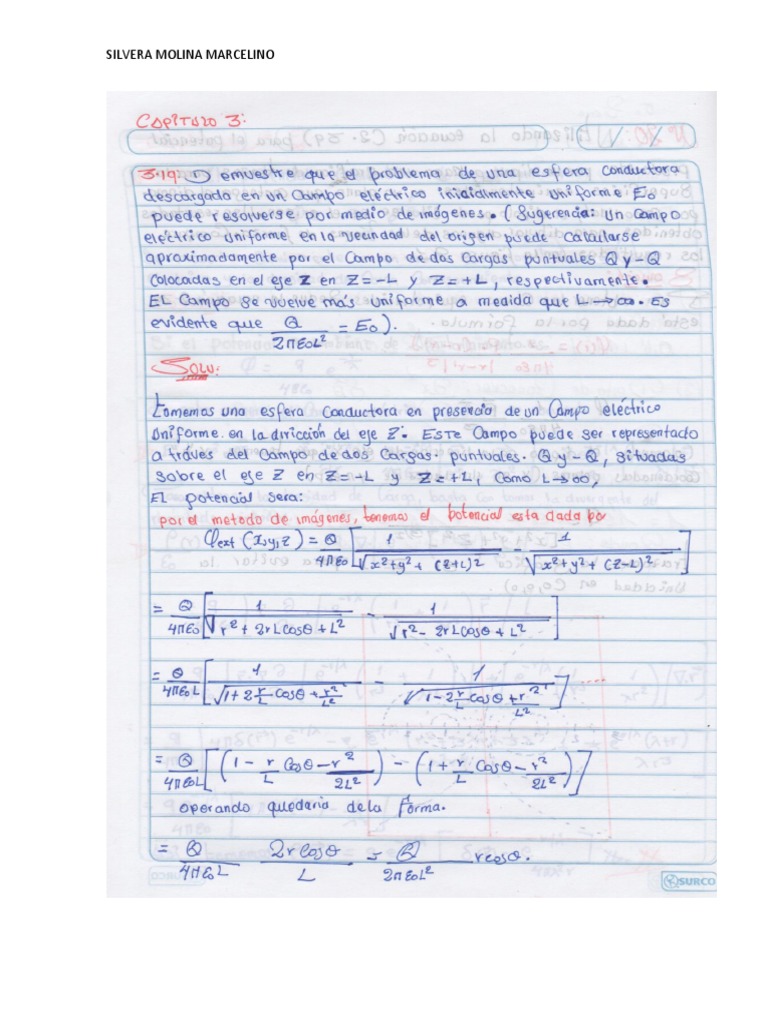 SILVERA MOLINA MARCELINO
CAPITULO 3:
3.19: Demuestre que el problema de una esfera conductora
descargada en un campo eléctrico inicialmente uniforme E₀
puede resolverse por medio de imágenes. (Sugerencia: Un campo
eléctrico uniforme en la vecindad del origen puede calcularse
aproximadamente por el campo de dos cargas puntuales Q y -Q
colocadas en el eje Z en Z=-L y Z=+L, respectivamente.
EL campo se vuelve más uniforme a medida que L→∞. Es
evidente que Q/2πε₀L² = E₀).
SOLU:
Tomemos una esfera conductora en presencia de un campo eléctrico
uniforme en la dirición del eje Z. ESTE campo puede ser representado
a tráves del campo de dos cargas puntuales. Q y -Q, situadas
sobre el eje Z en Z=-L y Z=+L, como L→∞,
EL potencial sera:
por el metodo de imágenes, tenemos el potencial esta dado por
φext (x,y,z) = Q/4πε₀ [ 1/√(x²+y²+(z+L)²) - 1/√(x²+y²+(z-L)²) ]
= Q/4πε₀ [ 1/√(r²+2rLcosθ+L²) - 1/√(r²-2rLcosθ+L²) ]
= Q/4πε₀L [ 1/√(1+2 r/L cosθ + r²/L²) - 1/√(1-2 r/L cosθ + r²/L²) ]
= Q/4πε₀L [ (1 - r/L cosθ - r²/2L²) - (1 + r/L cosθ - r²/2L²) ]
operando quedaria de la forma.
= Q/4πε₀L 2rcosθ/L = Q/2πε₀L² rcosθ.
SURCO